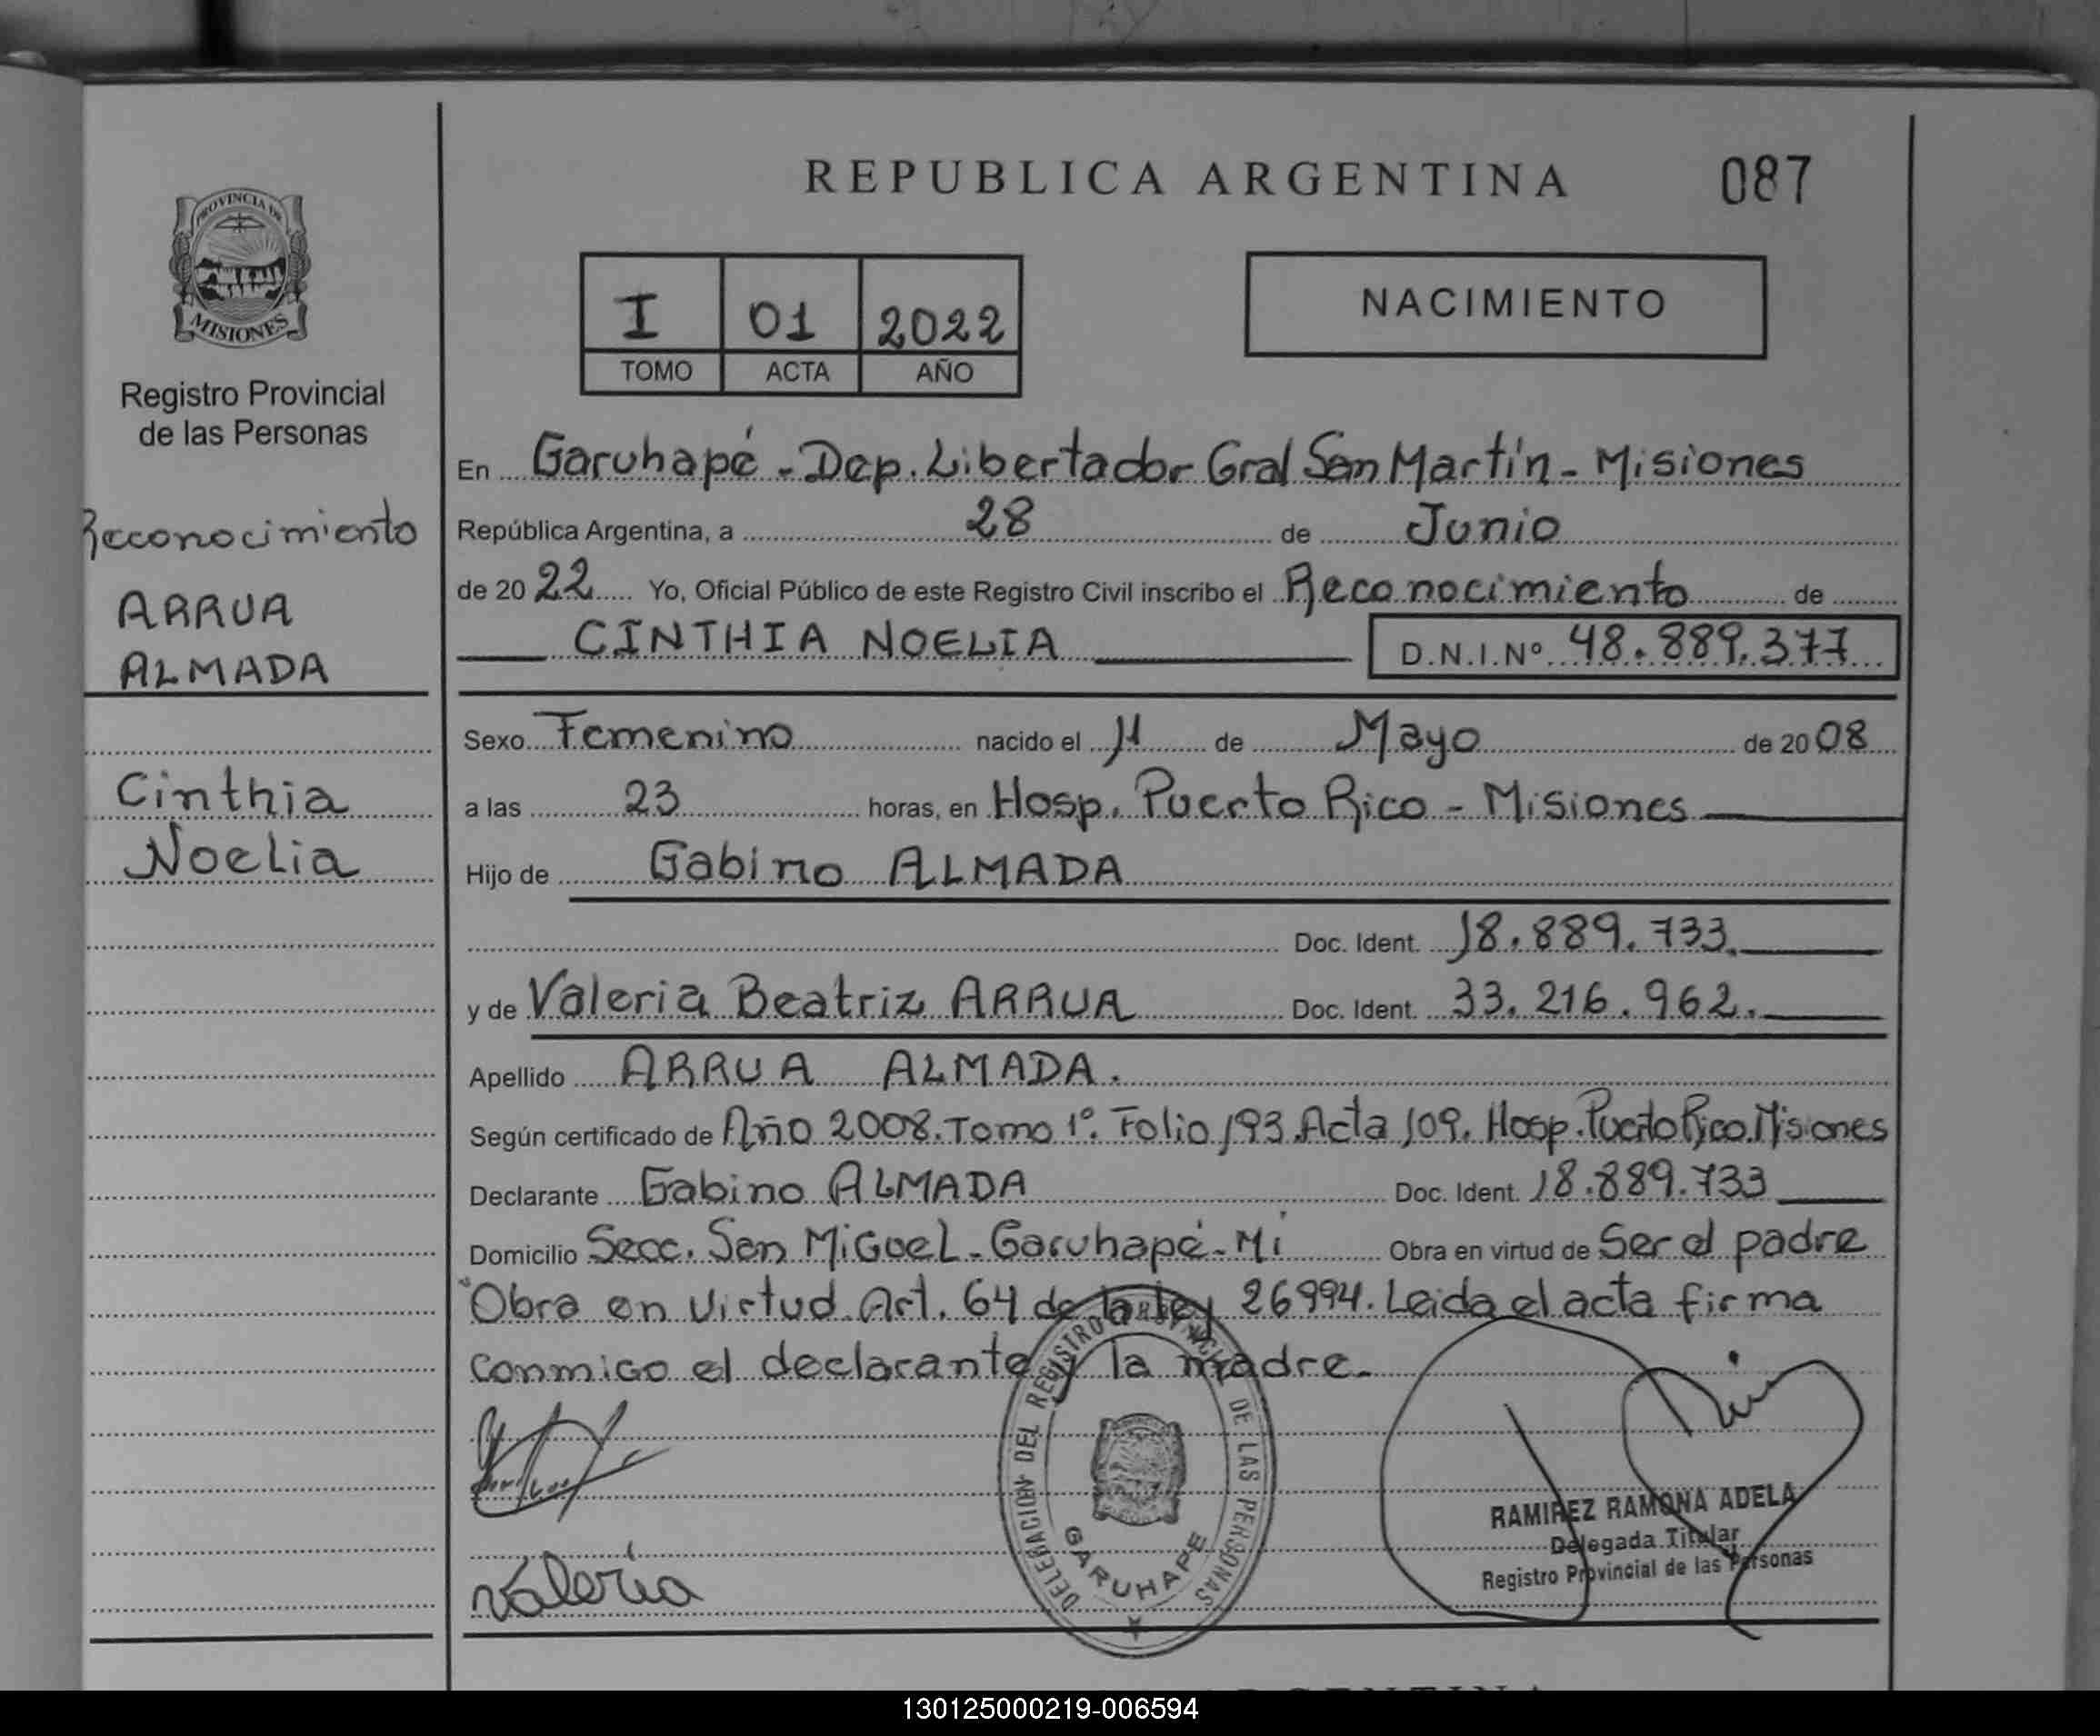 REPUBLICA ARGENTINA
087
PROVINCIA DE
MISIONES
Registro Provincial
de las Personas
Reconocimiento
ARRUA
ALMADA
Cinthia
Noelia
I 01 2022
TOMO ACTA AÑO
NACIMIENTO
En Garuhapé - Dep. Libertador Gral San Martín - Misiones
República Argentina, a 28 de Junio
de 20 22 Yo, Oficial Público de este Registro Civil inscribo el Reconocimiento de
CINTHIA NOELIA D.N.I.Nº 48.889.377
Sexo Femenino nacido el 11 de Mayo de 20 08
a las 23 horas, en Hosp. Puerto Rico - Misiones
Hijo de Gabino ALMADA
Doc. Ident. 18.889.733.
y de Valeria Beatriz ARRUA Doc. Ident. 33.216.962.
Apellido ARRUA ALMADA.
Según certificado de Año 2008. Tomo 1º. Folio 193. Acta 109. Hosp. Puerto Rico. Misiones
Declarante Gabino ALMADA Doc. Ident. 18.889.733
Domicilio Secc. San Miguel - Garuhapé - Mi Obra en virtud de Ser el padre
Obra en virtud Art. 64 de la ley 26994. Leida el acta firma
conmigo el declarante y la madre.
DELEGACION DEL REGISTRO PROVINCIAL DE LAS PERSONAS
GARUHAPE
Valeria
RAMIREZ RAMONA ADELA
Delegada Titular
Registro Provincial de las Personas
130125000219-006594